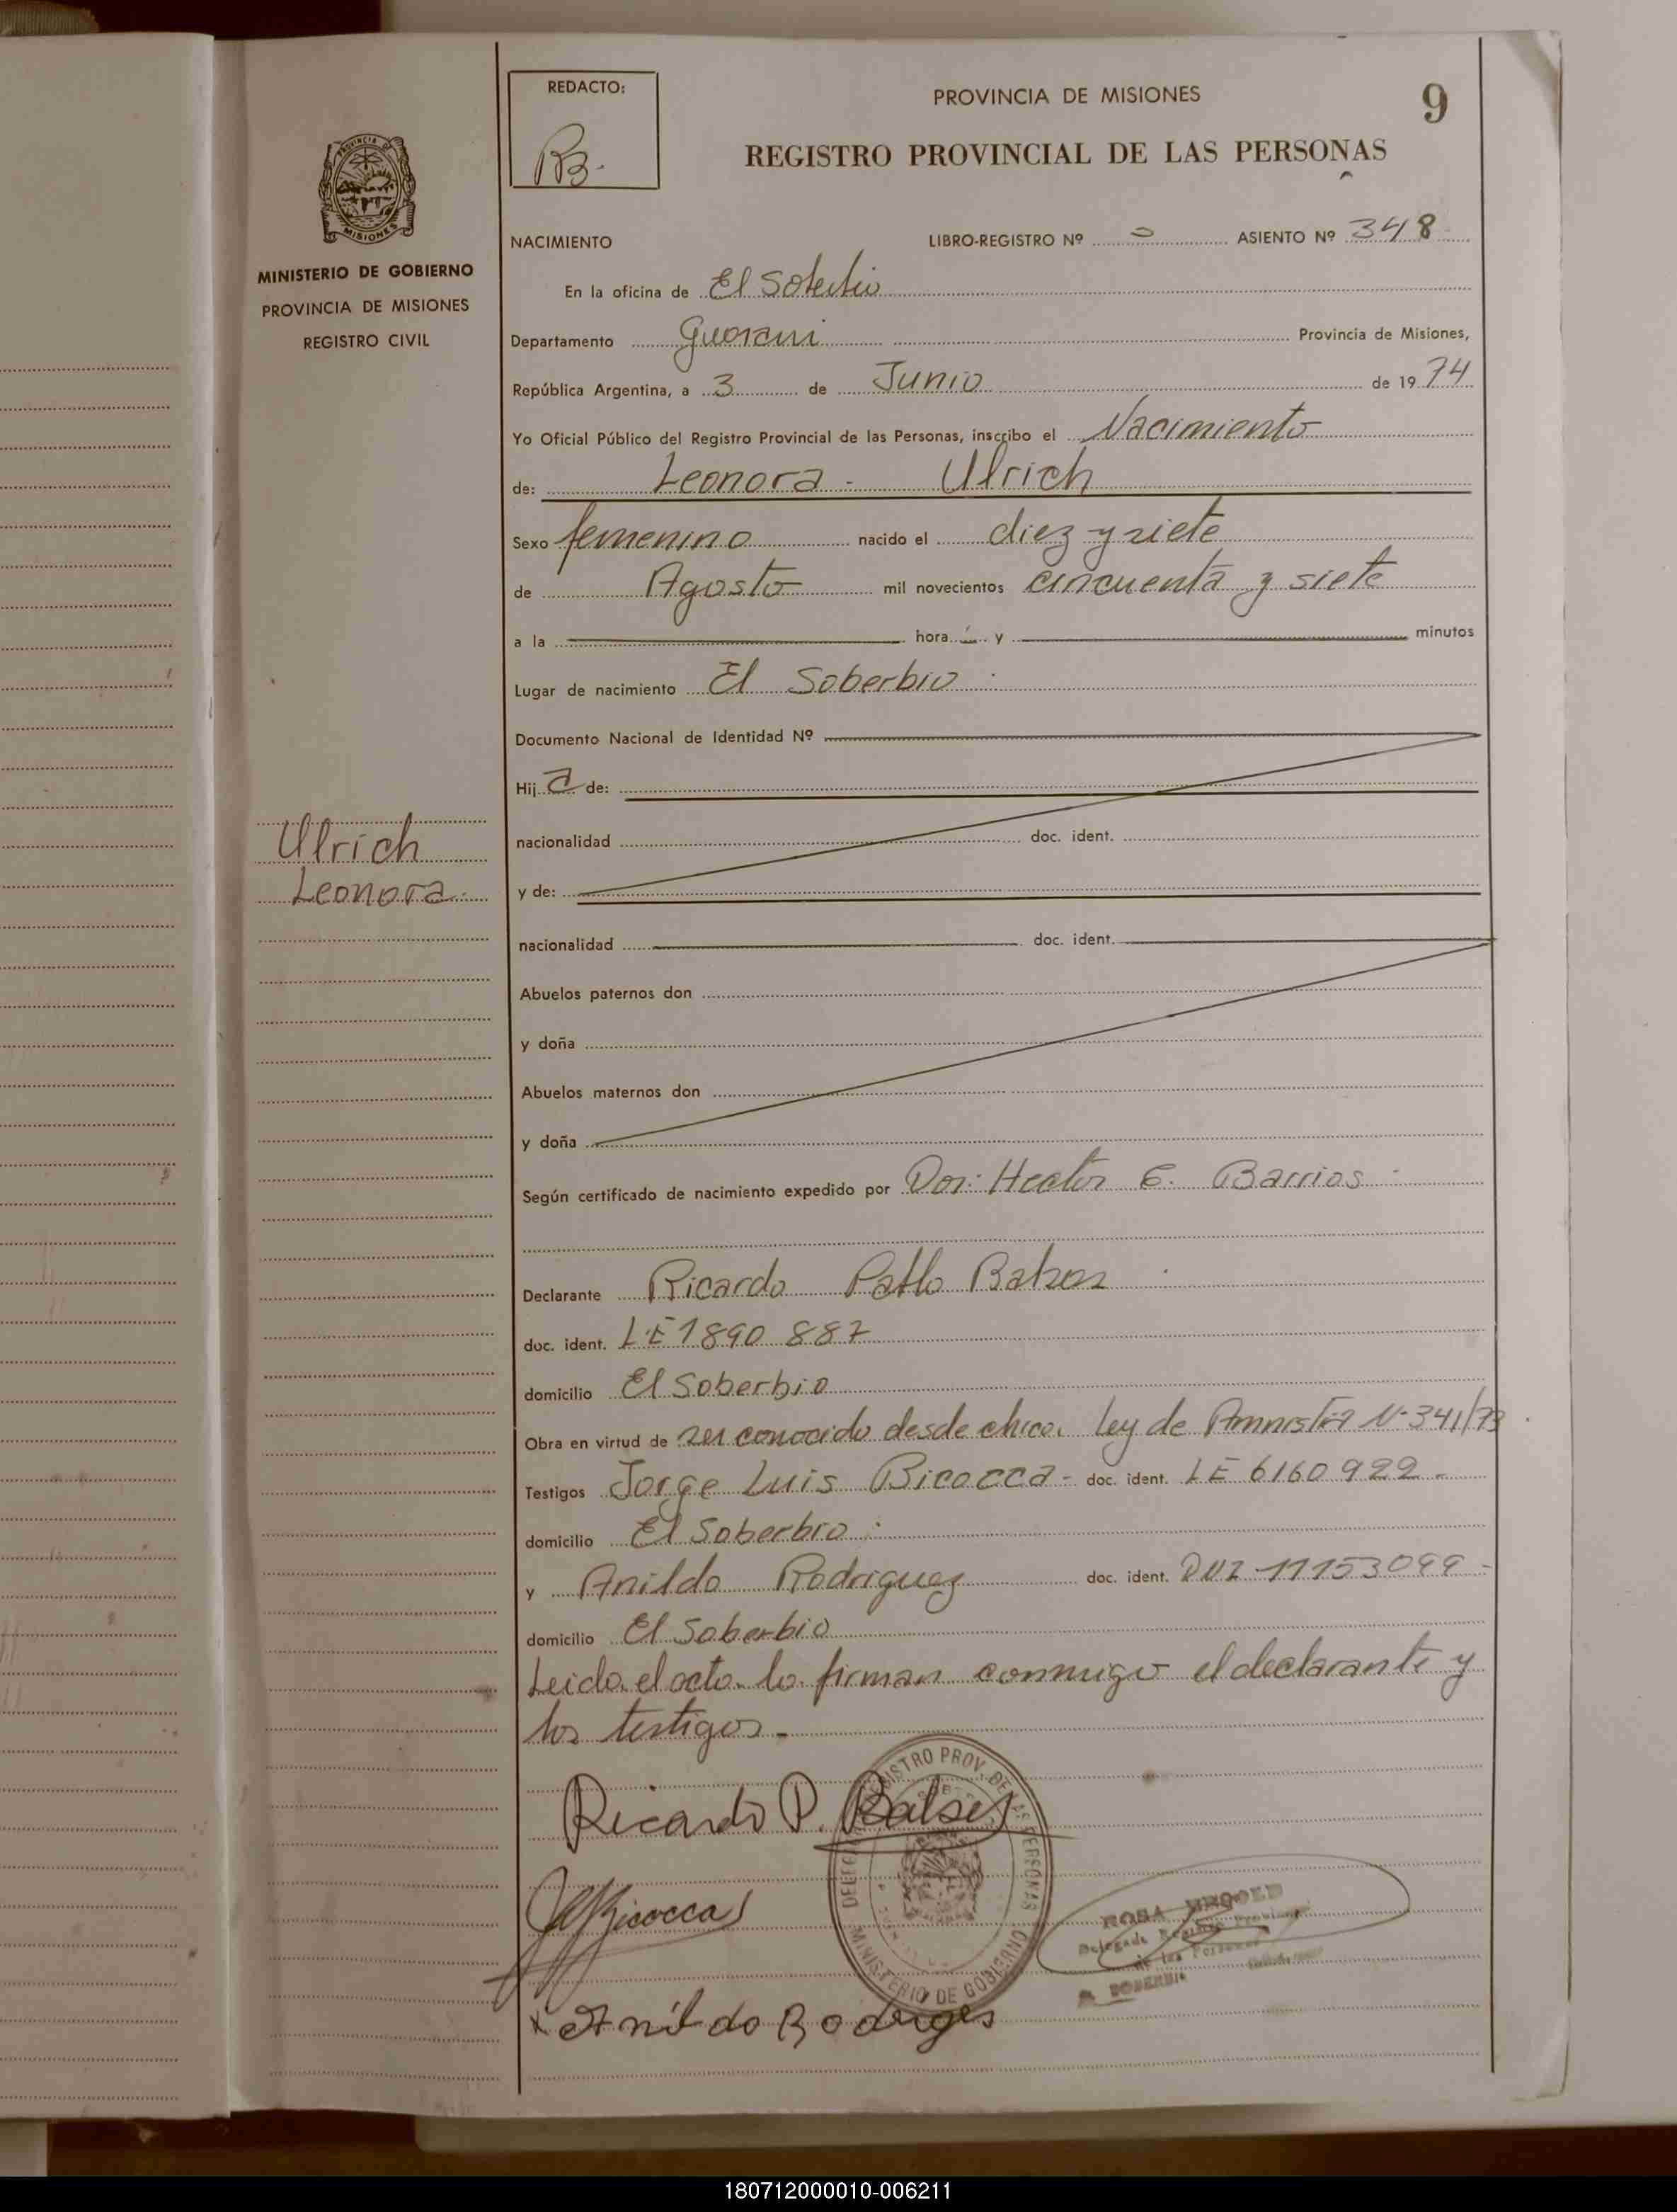 REDACTO:
PROVINCIA DE MISIONES
9
REGISTRO PROVINCIAL DE LAS PERSONAS
PROVINCIA DE
MISIONES
MINISTERIO DE GOBIERNO
PROVINCIA DE MISIONES
REGISTRO CIVIL
NACIMIENTO LIBRO-REGISTRO Nº ASIENTO Nº 348
En la oficina de El Soberbio
Departamento Guarani Provincia de Misiones,
República Argentina, a 3 de Junio de 1974
Yo Oficial Público del Registro Provincial de las Personas, inscribo el Nacimiento
de: Leonora - Ulrich
Sexo femenino nacido el diez y siete
de Agosto mil novecientos cincuenta y siete
a la hora y minutos
Lugar de nacimiento El Soberbio
Documento Nacional de Identidad Nº
Hija de:
nacionalidad doc. ident.
Ulrich
Leonora
y de:
nacionalidad doc. ident.
Abuelos paternos don
y doña
Abuelos maternos don
y doña
Según certificado de nacimiento expedido por Hector E. Barrios
Declarante Ricardo Pablo
doc. ident. LE 1890 887
domicilio El Soberbio
Obra en virtud de ser conocido desde chica. Ley de Amnistia N-341/73
Testigos Jorge Luis Bicocca - doc. ident. LE 6160922
domicilio El Soberbio
y Anildo Rodriguez doc. ident. DNI 11153099
domicilio El Soberbio
Leida el acta lo firman conmigo el declarante y
los testigos -
Ricardo P.
REGISTRO PROV. DE LAS PERSONAS
MINISTERIO DE GOBIERNO
Bicocca
ROSA
SOBERBIO
x Anildo Rodriges
180712000010-006211